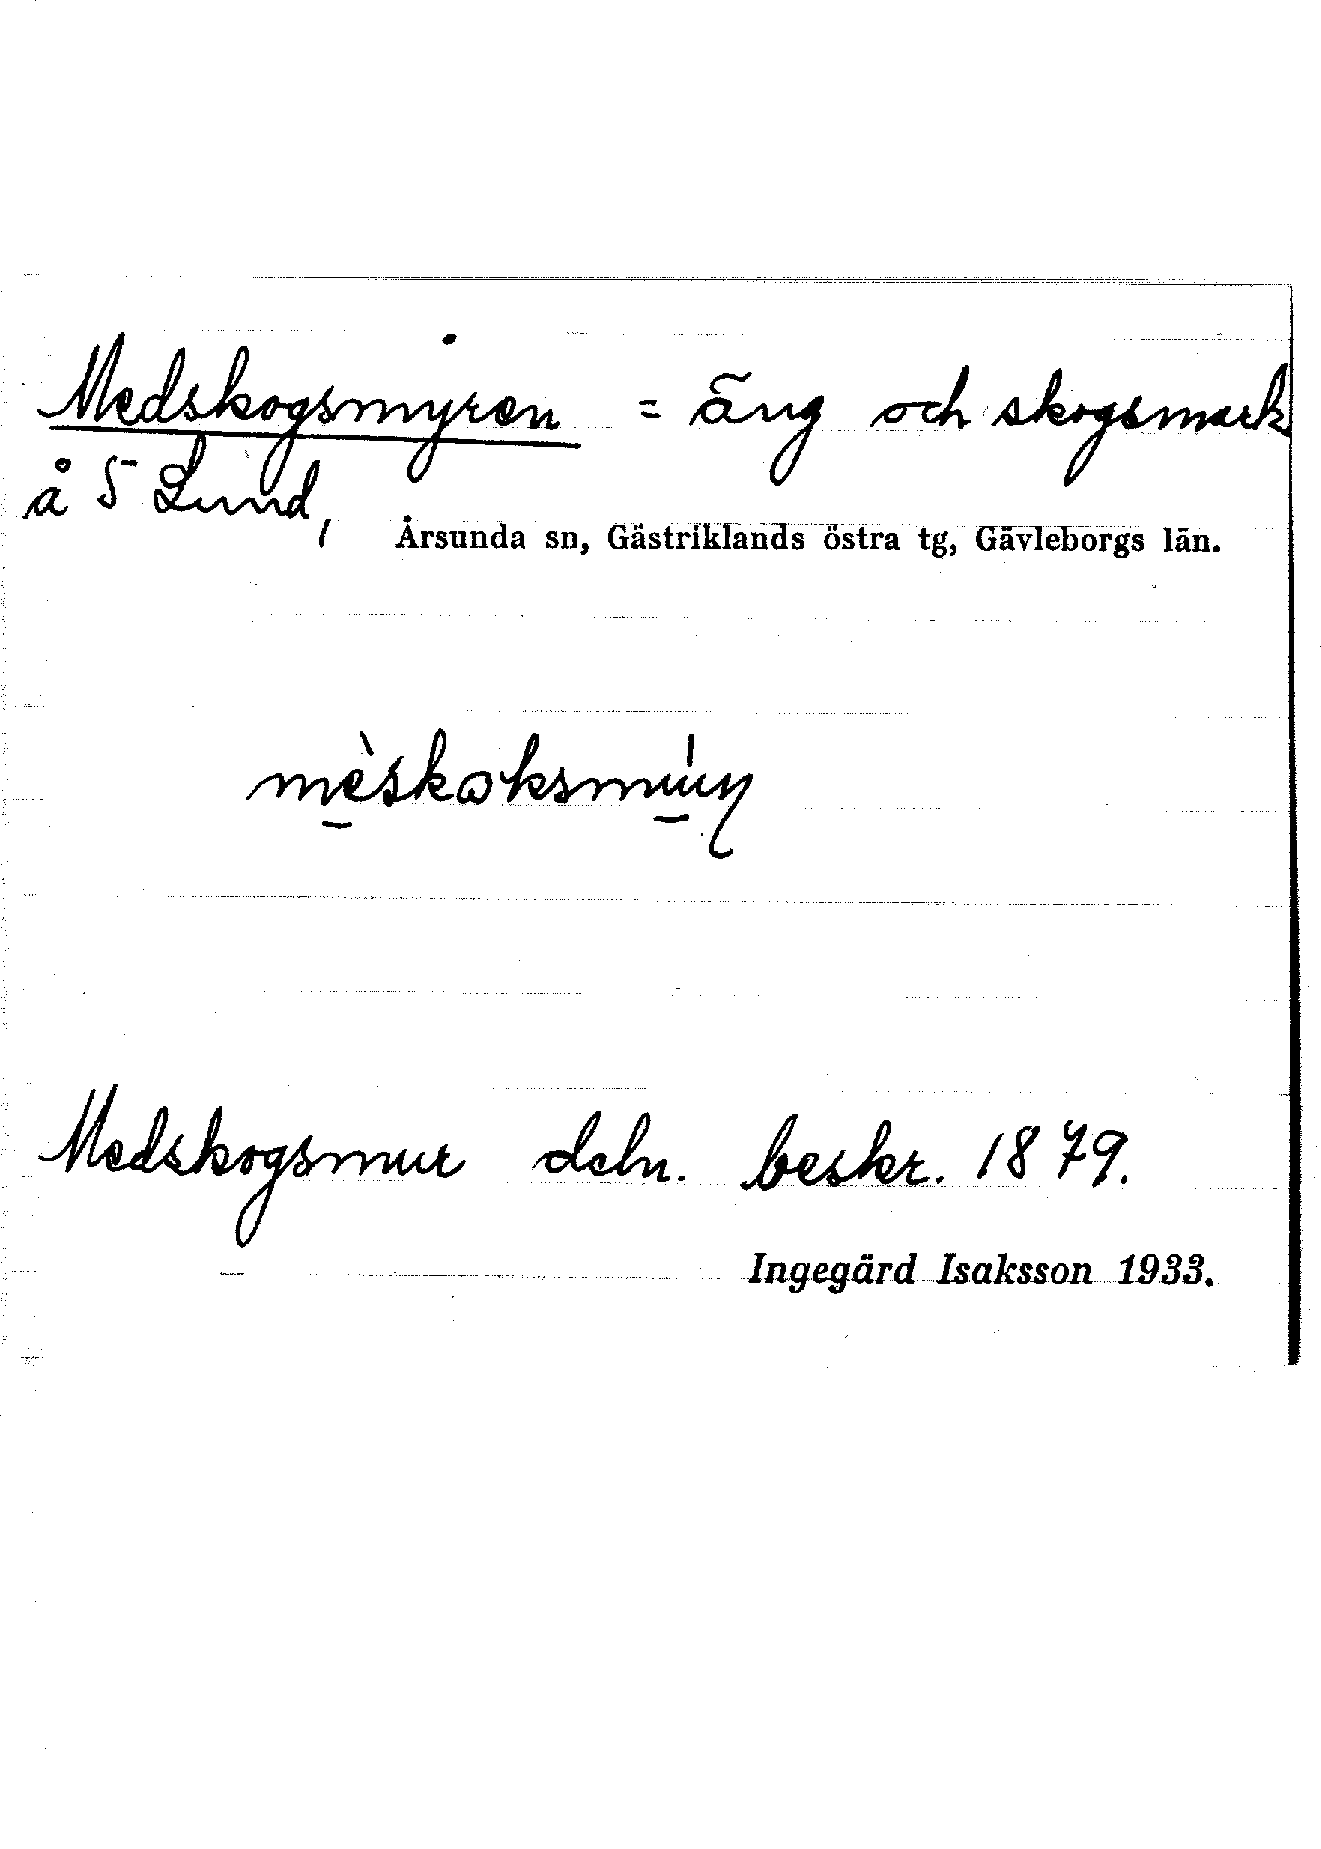 Medskogsmyren = äng och skogsmark
å 5 Lund,
Årsunda sn, Gästriklands östra tg, Gävleborgs län.
Medskogsmur deln. beskr. 1879.
Ingegärd Isaksson 1933.